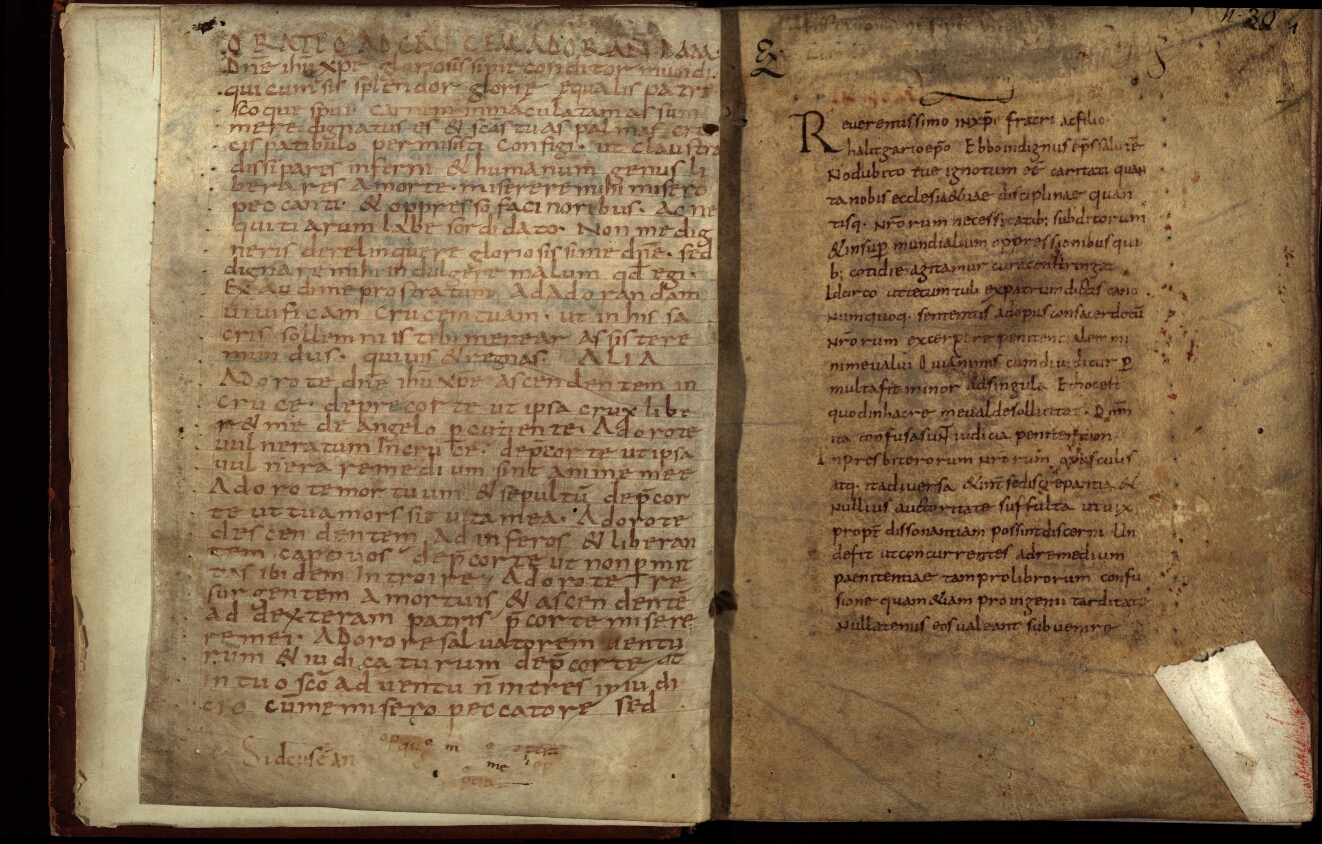 ORATIO AD CRUCEM ADORANDAM
Dne ihu xpe gloriosissime conditor mundi.
qui cum sis splendor glorie equalis patri
scoque spui carnem inmaculatam adsum
mere dignatus es & scas tuas palmas cru
cis patibulo permisisti configi. ut claustra
dissipares inferni & humanum genus li
berares amorte. miserere mihi misero
peccanti. & oppresso facinoribus. Ac ne
quitiarum labe sordidato. Non me dig
neris derelinquere gloriosissime dne. sed
dignare mihi indulgere malum qd egi.
Exaudi me prostratum Ad Adorandam
uiuificam crucem tuam. ut in his sa
cris sollemniis tibi merear assistere
mundus. qui uiuis & regnas. ALIA
Adoro te dne ihu xpe ascendentem in
cruce. deprecor te ut ipsa crux libe
r& me de angelo pcutiente. Adoro te
uulneratum In cruce. depcor te ut ipsa
uulnera remedium sint anime mee
Adoro te mortuum & sepultu depcor
te ut tua mors sit uita mea. Adoro te
descendentem Ad inferos & liberan
tem captiuos depcor te ut non pmit
tas ibidem Introire. Adoro te re
surgentem A mortuis & ascendente
ad dexteram patris pcor te misere
re mei. ADoro te saluatorem uentu
rum & iudicaturum depcor te ut
in tuo sco aduentu n intres in iudi
cio cu me misero peccatore sed
Si deus
me
Ex
Reuerentissimo inxpo fratri acfilio
halitgario epo Ebbo indignus eps salute
No dubito tue ignotum ee caritati quan
ta nobis ecclesiasticae disciplinae quan
tisq. nrorum necessitatib; subditorum
& insup mundialium oppressionibus qui
b; cotidie agitamur cura constringat
Idcirco ut tecum tuli expatrum dictis cano
numquoq. sententiis adopus consacerdotu
nrorum excerpere penitentialem mi
nime ualui Quia animus cum diuiditur p
multa fit minor adsingula Et hoc est
quod in hac re me ualde sollicitat. Qm
ita confusa sunt iudicia penitentium
Inpresbiterorum nrorum opusculis
atq. ita diuersa & int se discrepantia &
nullius auctoritate suffulta ut uix
propt dissonantiam possint discerni Un
de fit ut concurrentes adremedium
paenitentiae tam pro librorum confu
sione quam &iam pro ingenii tarditate
nullatenus eos ualeant subuenire